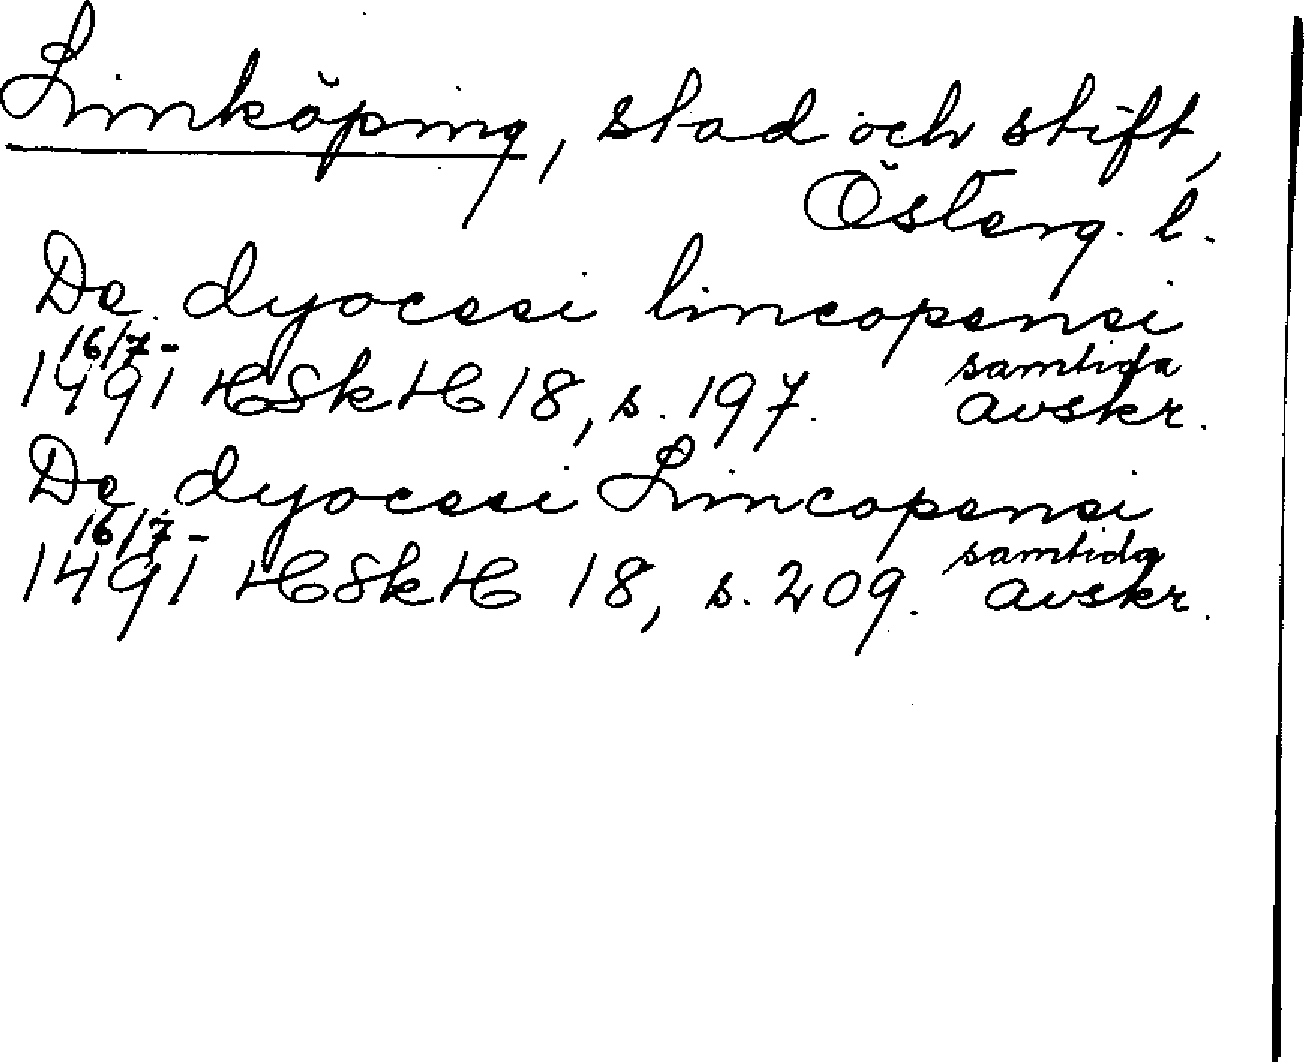 Linköping, stad och stift,
Österg. l.
De dyocesi lincopensi
16/7-
1491 HSkH 18, s. 197. samtida avskr.
De dyocesi Lincopensi
16/7-
1491 HSkH 18, s. 209. samtida avskr.